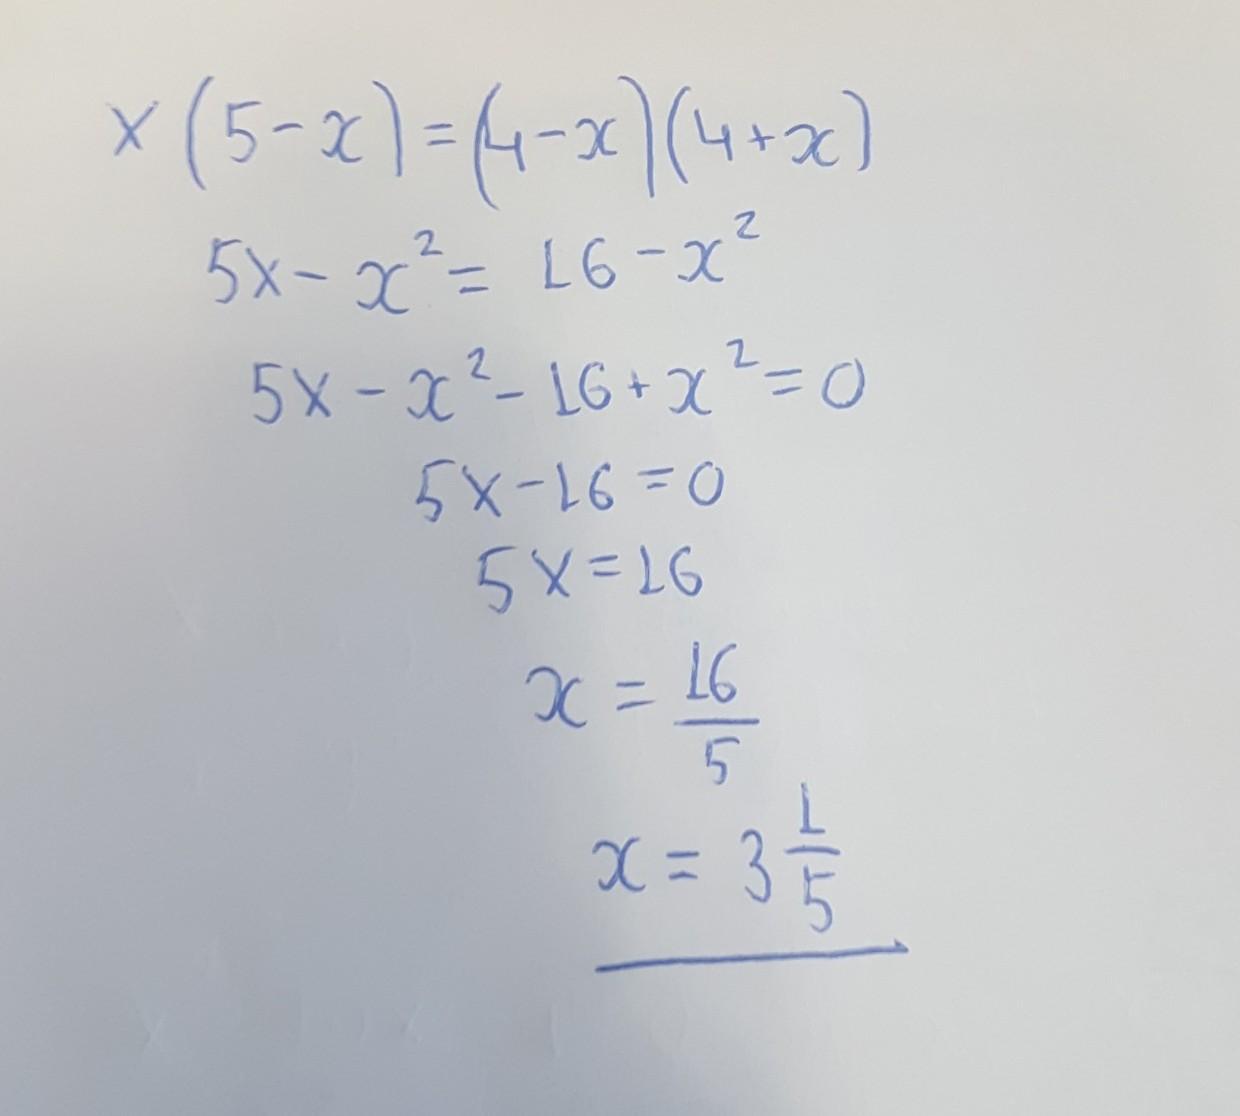 x(5-x)=(4-x)(4+x)
5x-x²=16-x²
5x-x²-16+x²=0
5x-16=0
5x=16
x=16/5
x=3 1/5